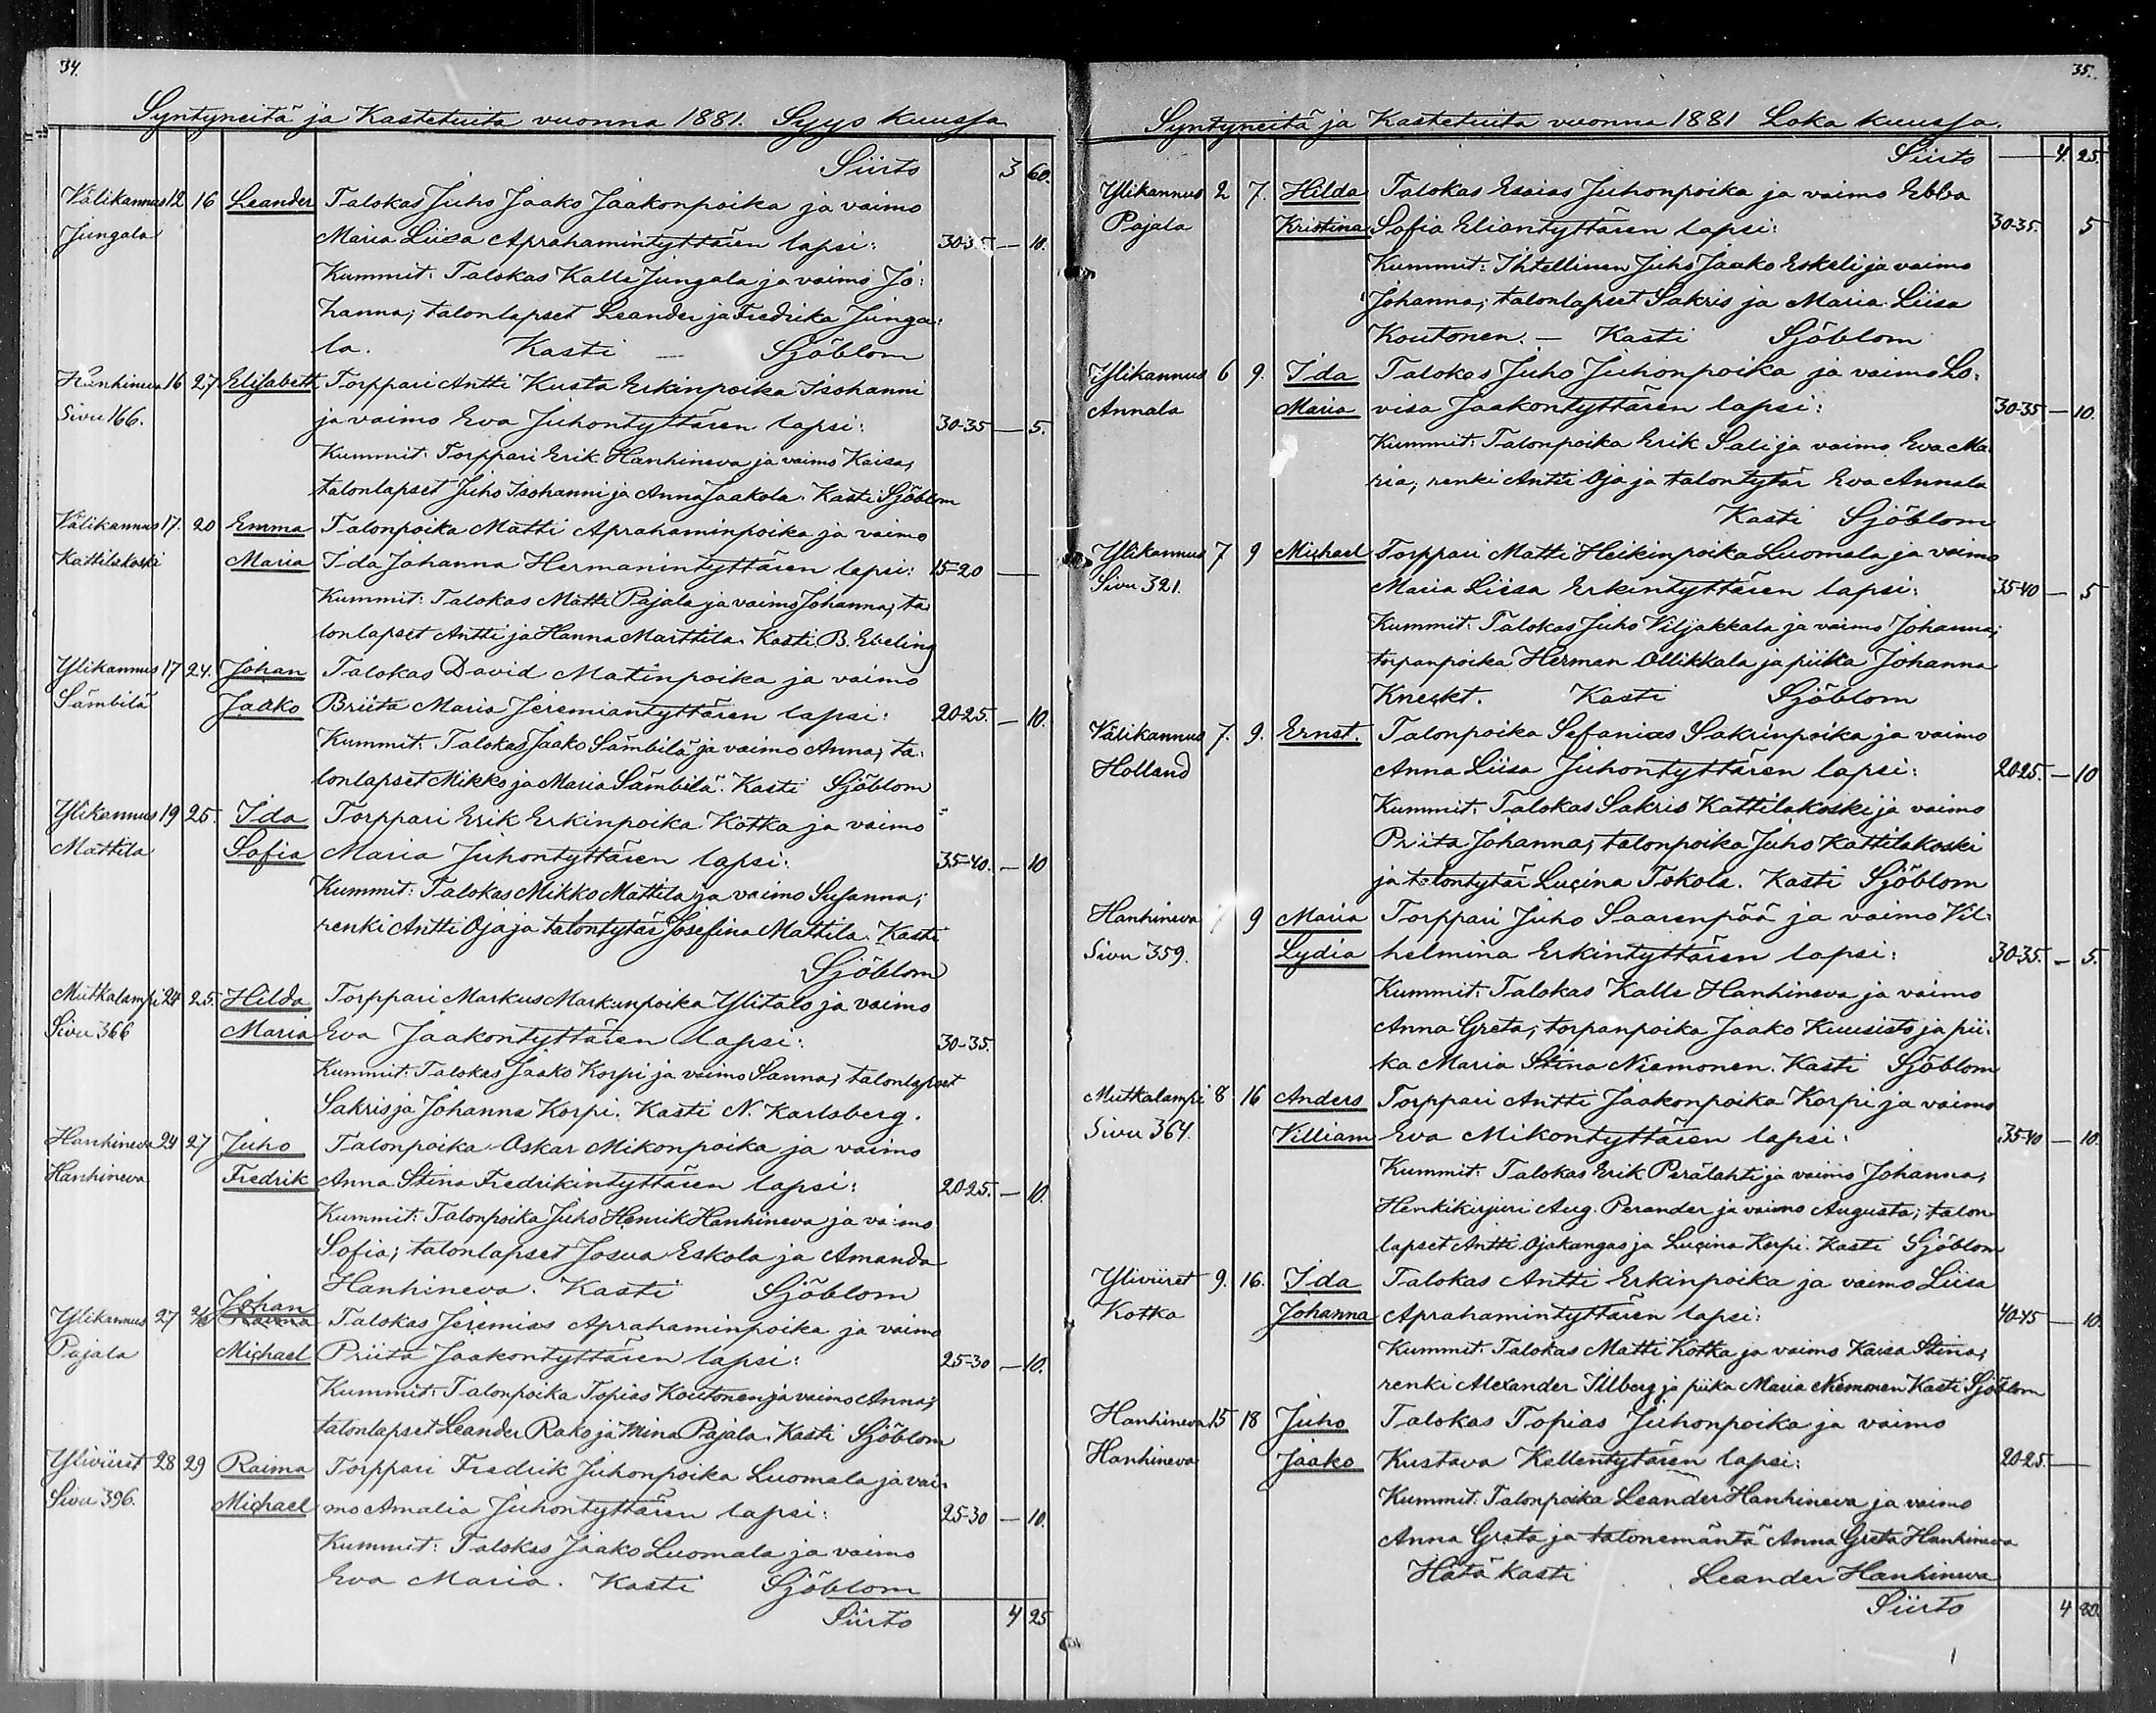 34.
Syntyneitä ja Kastetuita vuonna 1881. Syys kuussa
Siirto 3 60.
Välikannus 12 16 Leander Talokas Juho Jaako Jaakonpoika ja vaimo
Jungala Maria Liisa Aprahamintyttären lapsi: 30-35 — 10.
Kummit: Talokas Kalle Jungala ja vaimo Jo:
hanna; talonlapset Leander ja Fredrika Junga:
la. Kasti — Sjöblom
Hanhineva 16 27 Elisabeth Torppari Antti Kusta Erkinpoika Isohanni
Sivu 166. ja vaimo Eva Juhontyttären lapsi: 30-35 — 5.
Kummit: Torppari Erik Hanhineva ja vaimo Kaisa,
talonlapset Juho Isohanni ja Anna Jaakola. Kasti Sjöblom
Välikannus 17. 20 Emma Talonpoika Matti Aprahaminpoika ja vaimo
Kattilakoski Maria Ida Johanna Hermanintyttären lapsi: 15-20 —
Kummit: Talokas Matti Pajala ja vaimo Johanna; ta
lonlapset Antti ja Hanna Marttila. Kasti B. Ebeling
Ylikannus 17 24. Johan Talokas David Matinpoika ja vaimo
Sämbilä Jaako Briita Maria Jeremiantyttären lapsi: 20-25. — 10.
Kummit: Talokas Jaako Sämbilä ja vaimo Anna; ta:
lonlapset Mikko ja Maria Sämbilä. Kasti Sjöblom
Ylikannus 19 25. Ida Torppari Erik Erkinpoika Kotka ja vaimo
Mattila Sofia Maria Juhontyttären lapsi: 35-40. — 10
Kummit: Talokas Mikko Mattila ja vaimo Susanna;
renki Antti Oja ja talontytär Josefina Mattila. Kasti
Sjöblom
Mutkalampi 24 25. Hilda Torppari Markus Markunpoika Ylitalo ja vaimo
Sivu 366 Maria Eva Jaakontyttären lapsi: 30-35.
Kummit: Talokas Jaako Korpi ja vaimo Sanna; talonlapset
Sakris ja Johanna Korpi. Kasti N. Karlsberg.
Hanhineva 24 27 Juho Talonpoika Oskar Mikonpoika ja vaimo
Hanhineva Fredrik Anna Stina Fredrikintyttären lapsi: 20-25. — 10.
Kummit: Talonpoika Juho Henrik Hanhineva ja vaimo
Sofia; talonlapset Josua Eskola ja Amanda
Hanhineva. Kasti Sjöblom
Johan
Ylikannus 27 Raima Talokas Jeremias Aprahaminpoika ja vaimo
Pajala Michael Priita Jaakontyttären lapsi: 25-30 — 10.
Kummit: Talonpoika Topias Koutonen ja vaimo Anna;
talonlapset Leander Rako ja Mina Pajala. Kasti Sjöblom
Yliviiret 28 29 Raima Torppari Fredrik Juhonpoika Luomala ja vai:
Sivu 396. Michael mo Amalia Juhontyttären lapsi: 25-30 — 10.
Kummit: Talokas Jaako Luomala ja vaimo
Eva Maria. Kasti Sjöblom
Siirto 4 25
35.
Syntyneitä ja Kastetuita vuonna 1881 Loka kuussa.
Siirto — 4. 25.
Ylikannus 2 7. Hilda Talokas Esaias Juhonpoika ja vaimo Ebba
Pajala Kristina Sofia Eliantyttären lapsi: 30-35. 5
Kummit: Ihtellinen Juho Jaako Eskeli ja vaimo
Johanna; talonlapset Sakris ja Maria Liisa
Koutonen. — Kasti Sjöblom
Ylikannus 6 9. Ida Talokas Juho Juhonpoika ja vaimo Lo:
Annala Maria visa Jaakontyttären lapsi: 30-35 — 10.
Kummit: Talonpoika Erik Sali ja vaimo Eva Ma:
ria, renki Antti Oja ja talontytär Eva Annala
Kasti Sjöblom
Ylikannus 7 9 Michael Torppari Matti Heikinpoika Luomala ja vaimo
Sivu 321. Maria Liisa Erkintyttären lapsi: 35-40 — 5
Kummit: Talokas Juho Viljakkala ja vaimo Johanna;
torpanpoika Herman Ollikkala ja piika Johanna
Knekt. Kasti Sjöblom
Välikannus 7. 9. Ernst. Talonpoika Sefanias Sakrinpoika ja vaimo
Holland Anna Liisa Juhontyttären lapsi: 20-25. — 10
Kummit: Talokas Sakris Kattilakoski ja vaimo
Priita Johanna; talonpoika Juho Kattilakoski
ja talontytär Lucina Tokola. Kasti Sjöblom
Hanhineva 7 9 Maria Torppari Juho Saarenpää ja vaimo Vil:
Sivu 359. Lydia helmina Erkintyttären lapsi: 30-35. — 5.
Kummit: Talokas Kalle Hanhineva ja vaimo
Anna Greta; torpanpoika Jaako Kuusisto ja pii:
ka Maria Stina Niemonen. Kasti Sjöblom
Mutkalampi 8 16 Anders Torppari Antti Jaakonpoika Korpi ja vaimo
Sivu 364. Villiam Eva Mikontyttären lapsi: 35-40 — 10.
Kummit: Talokas Erik Perälahti ja vaimo Johanna,
Henkikirjuri Aug. Perander ja vaimo Augusta; talon
lapset Antti Ojakangas ja Lucina Korpi. Kasti Sjöblom
Yliviiret 9. 16. Ida Talokas Antti Erkinpoika ja vaimo Liisa
Kotka Johanna Aprahamintyttären lapsi: 40-45 — 10
Kummit: Talokas Matti Kotka ja vaimo Kaisa Stina,
renki Alexander Illberg ja piika Maria Niemonen Kasti Sjöblom
Hanhineva 15 18 Juho Talokas Topias Juhonpoika ja vaimo
Hanhineva Jaako Kustava Kallentytären lapsi: 20-25. —
Kummit: Talonpoika Leander Hanhineva ja vaimo
Anna Greta ja talonemäntä Anna Greta Hanhineva
Hätä kasti Leander Hanhineva
Siirto 4 80.